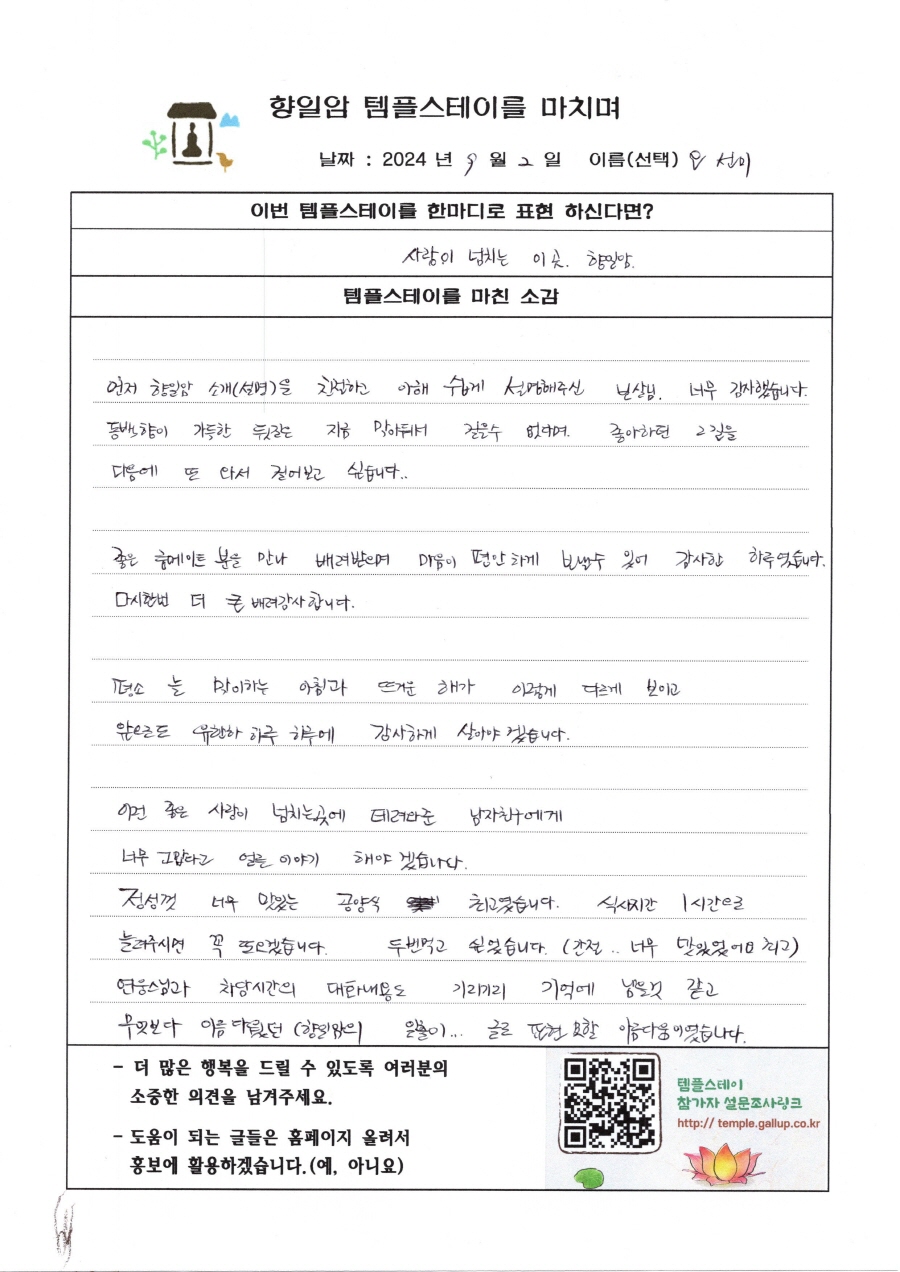 향일암 템플스테이를 마치며
날짜 : 2024 년 9 월 2 일 이름(선택) 선미
이번 템플스테이를 한마디로 표현 하신다면?
사람이 넘치는 이 곳. 향일암.
템플스테이를 마친 소감
먼저 향일암 소개(설명)을 친절하고 이해 쉽게 설명해주신 보살님. 너무 감사했습니다.
동백향이 가득한 뒷길은 지금 막아둬서 걸을수 없다며. 좋아하던 그길을
다음에 또 와서 걸어보고 싶습니다..
좋은 룸메이트 분을 만나 배려받으며 마음이 편안하게 보낼수 있어 감사한 하루였습니다.
다시한번 더 큰 배려감사합니다.
평소 늘 맞이하는 아침과 뜨거운 해가 이렇게 다르게 보이고
앞으로도 유한한 하루 하루에 감사하게 살아야 겠습니다.
이런 좋은 사람이 넘치는곳에 데려와준 남자친구에게
너무 고맙다고 얼른 이야기 해야 겠습니다.
정성껏 너무 맛있는 공양식 최고였습니다. 식사시간 1시간으로
늘려주시면 꼭 또오겠습니다. 두번먹고 싶었습니다. (간절.. 너무 맛있었어요 최고)
연웅스님과 차담시간의 대화내용도 기리기리 기억에 남을것 같고
무엇보다 이름다웠던 (향일암의 일출이... 글로 표현 못할 아름다움이였습니다.
- 더 많은 행복을 드릴 수 있도록 여러분의
소중한 의견을 남겨주세요.
- 도움이 되는 글들은 홈페이지 올려서
홍보에 활용하겠습니다.(예, 아니요)
템플스테이
참가자 설문조사링크
http:// temple.gallup.co.kr